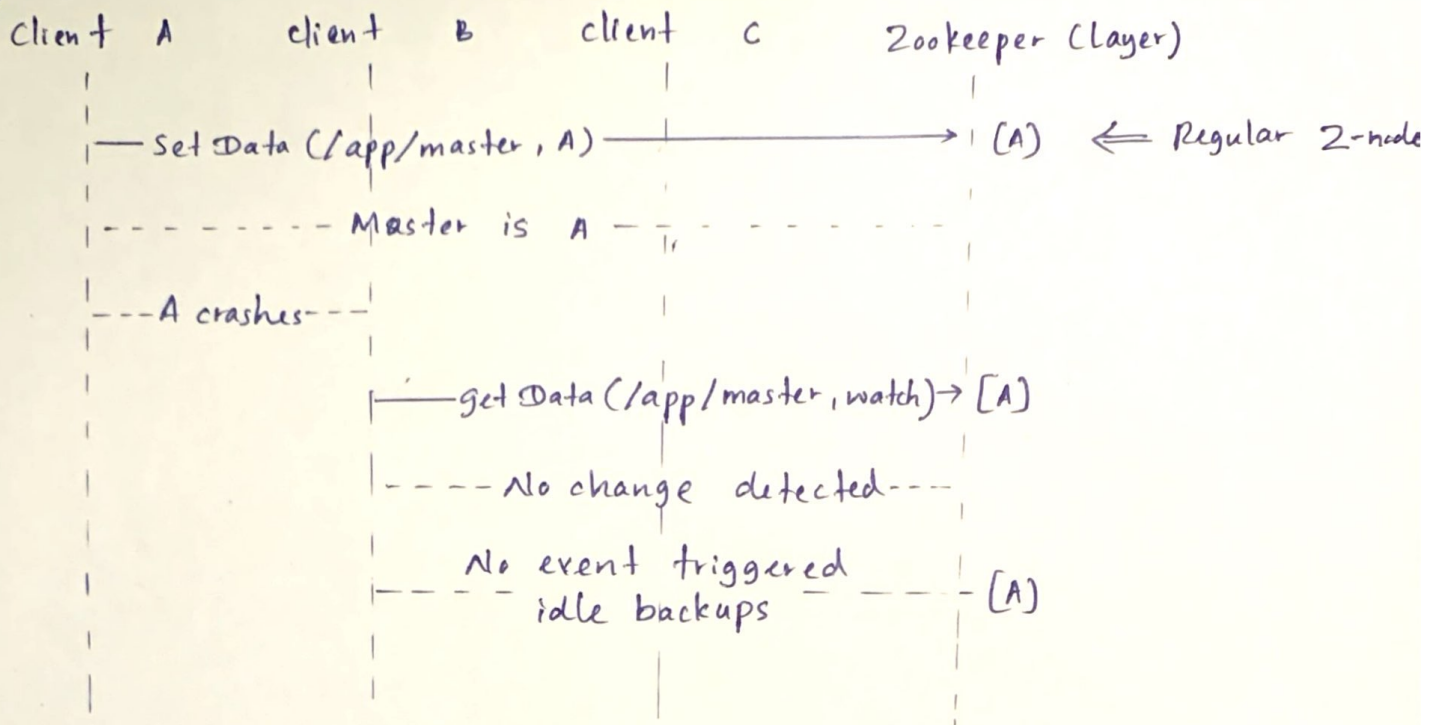 Client A client B client C Zookeeper (Layer)
Set Data (/app/master, A) [A] ⇐ Regular Z-node
Master is A
A crashes
get Data (/app/master, watch) → [A]
No change detected
No event triggered [A]
idle backups